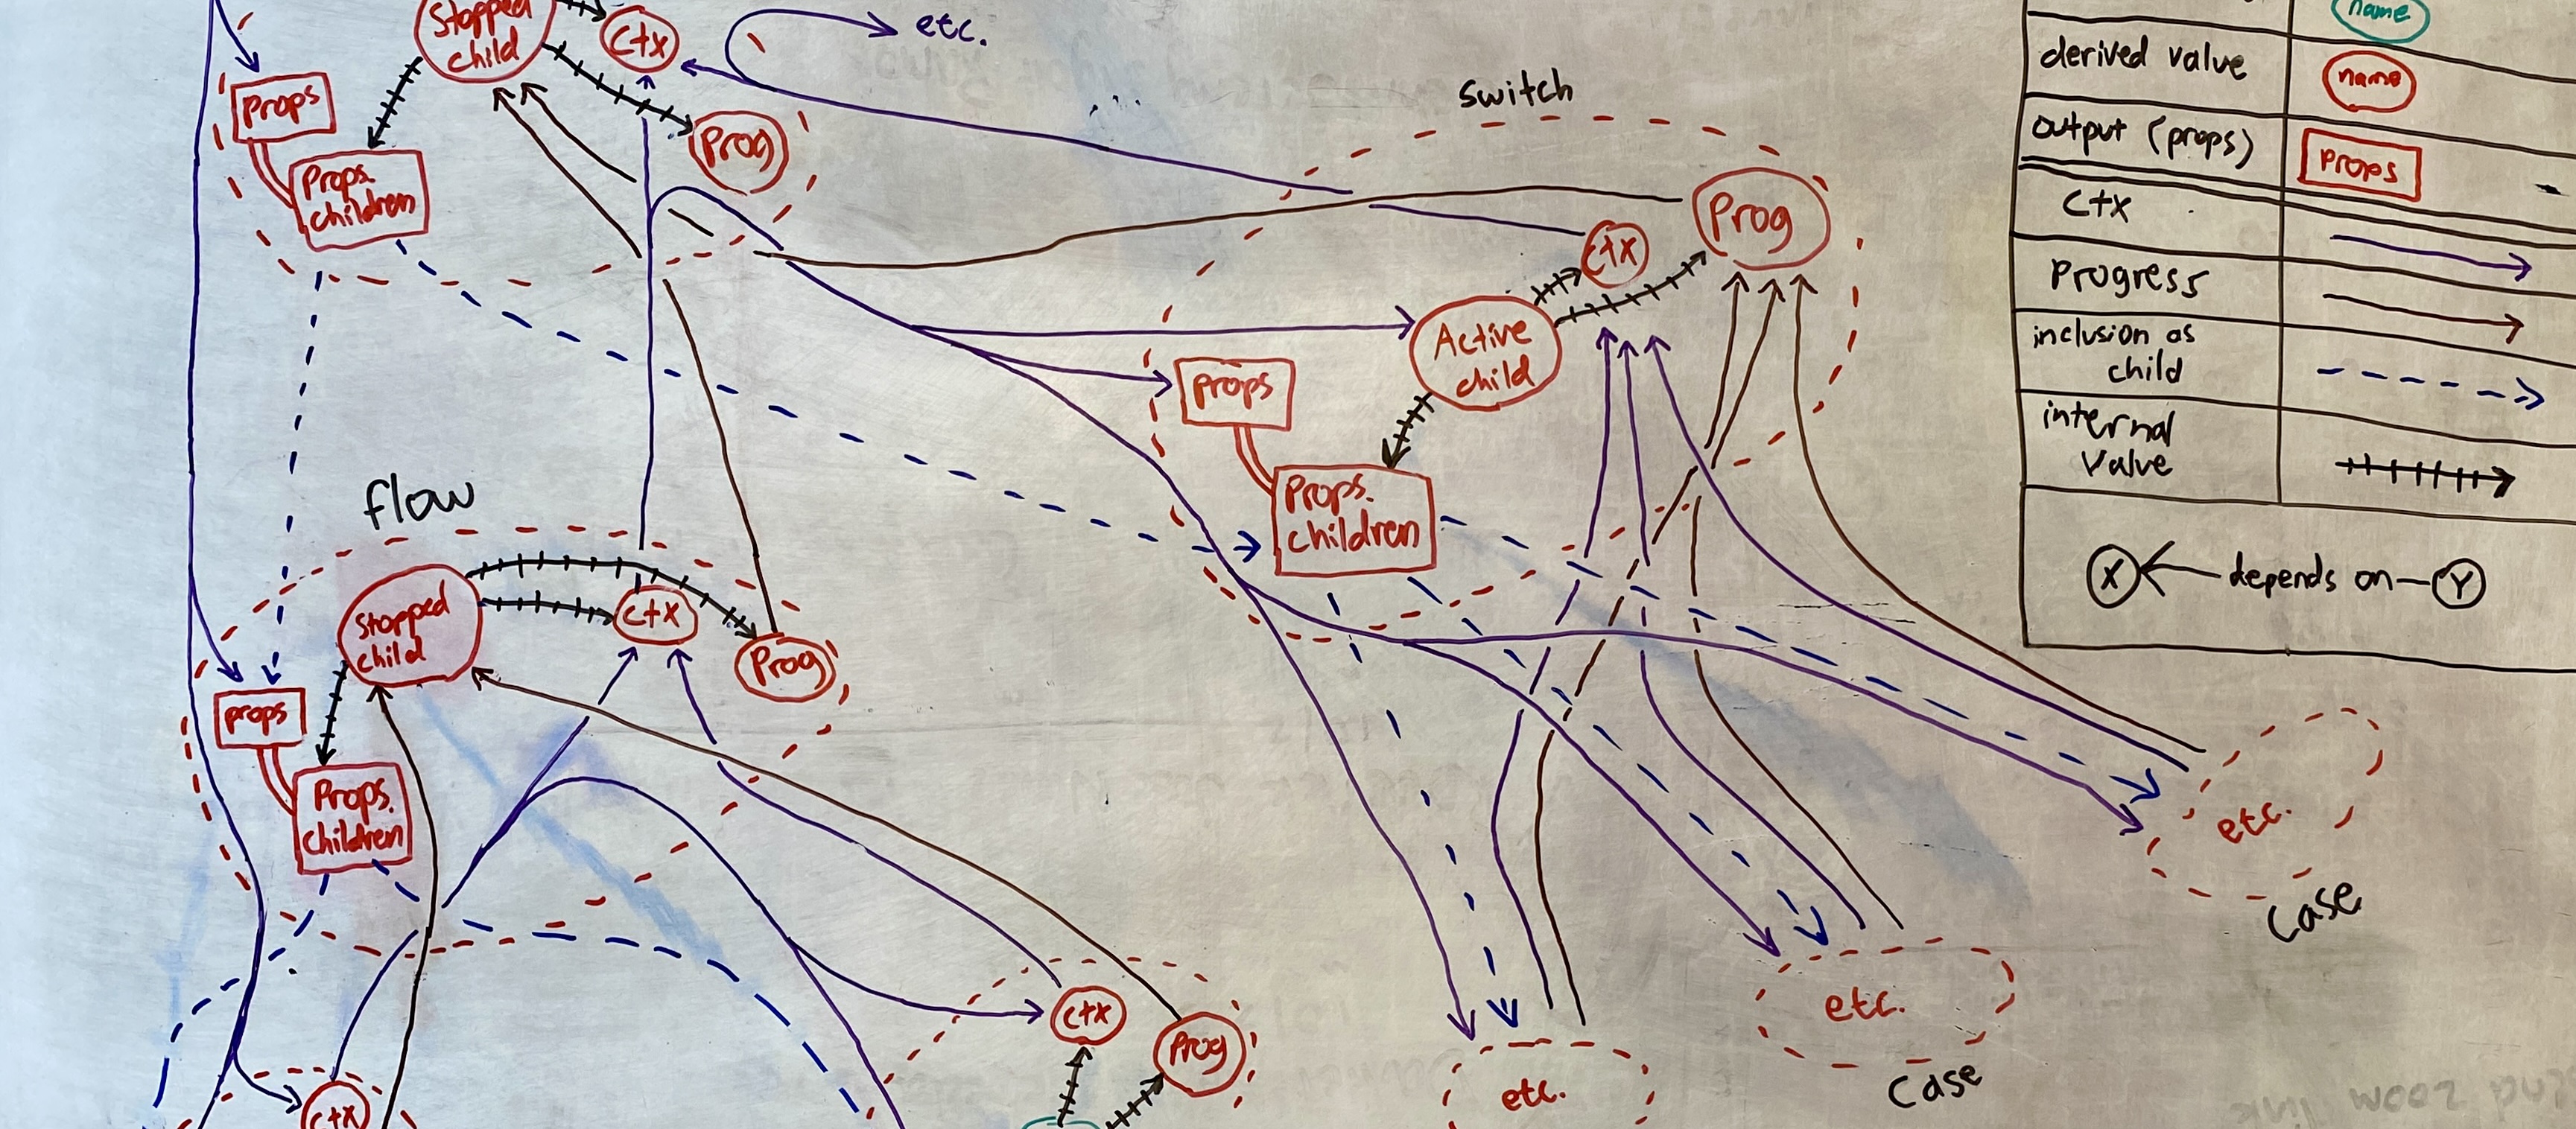 Stopped
child
ctx
etc.
props
Props.
children
Prog
switch
Prog
ctx
Active
child
props
Props.
children
flow
Stopped
child
ctx
Prog
props
Props.
children
ctx
Prog
ctx
etc.
etc.
Case
etc.
Case
name
derived value
name
output (props)
props
ctx
Progress
inclusion as
child
internal
Value
X
depends on
Y
zoom link